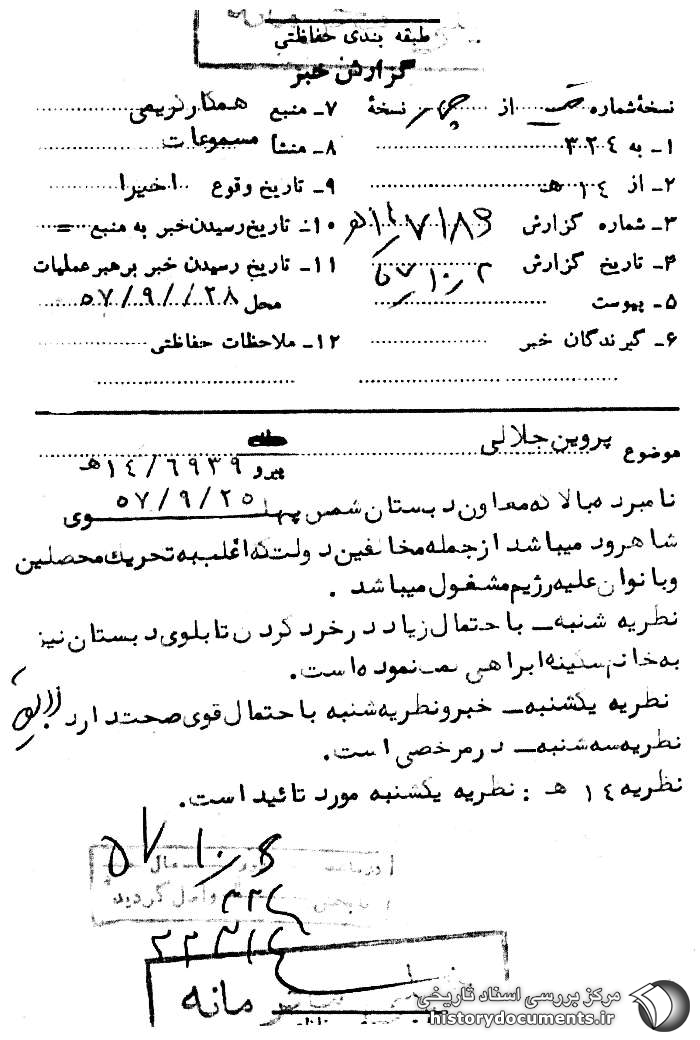 طبقه بندی حفاظتی
گزارش خبر
نسخهٔ شماره از نسخهٔ
۱ـ به ۳۲۴
۲ـ از ۱۴ هـ
۳ـ شماره گزارش
۴ـ تاریخ گزارش ۲ ر ۱۰ ر ۵۷
۵ـ پیوست
۶ـ گیرندگان خبر
۷ـ منبع همکار نریمی
۸ـ منشأ مسموعات
۹ـ تاریخ وقوع اخیرا
۱۰ـ تاریخ رسیدن خبر به منبع =
۱۱ـ تاریخ رسیدن خبر برهبر عملیات
محل ۵۷/۹/۲۸
۱۲ـ ملاحظات حفاظتی
موضوع پروین جلالی
پیرو ۱۴/۶۹۳۹هـ
۵۷/۹/۲۵
نامبرده بالا که معاون دبستان شمس پهلوی
شاهرود میباشد از جمله مخالفین دولت که اغلب به تحریك محصلین
وبانوان علیه رژیم مشغول میباشد .
نظریه شنبه ـ با حتمال زیاد در خرد کردن تابلوی دبستان نیز
به خانم سکینه ابراهیمی نموده است.
نظریه یکشنبه ـ خبر ونظریه شنبه با حتمال قوی صحت دارد
نظریه سه شنبه ـ در مرخصی است.
نظریه ۱۴ هـ : نظریه یکشنبه مورد تائید است.
۵۷
۳۲۴
گردید
مانه
مرکز بررسی اسناد تاریخی
historydocuments.ir